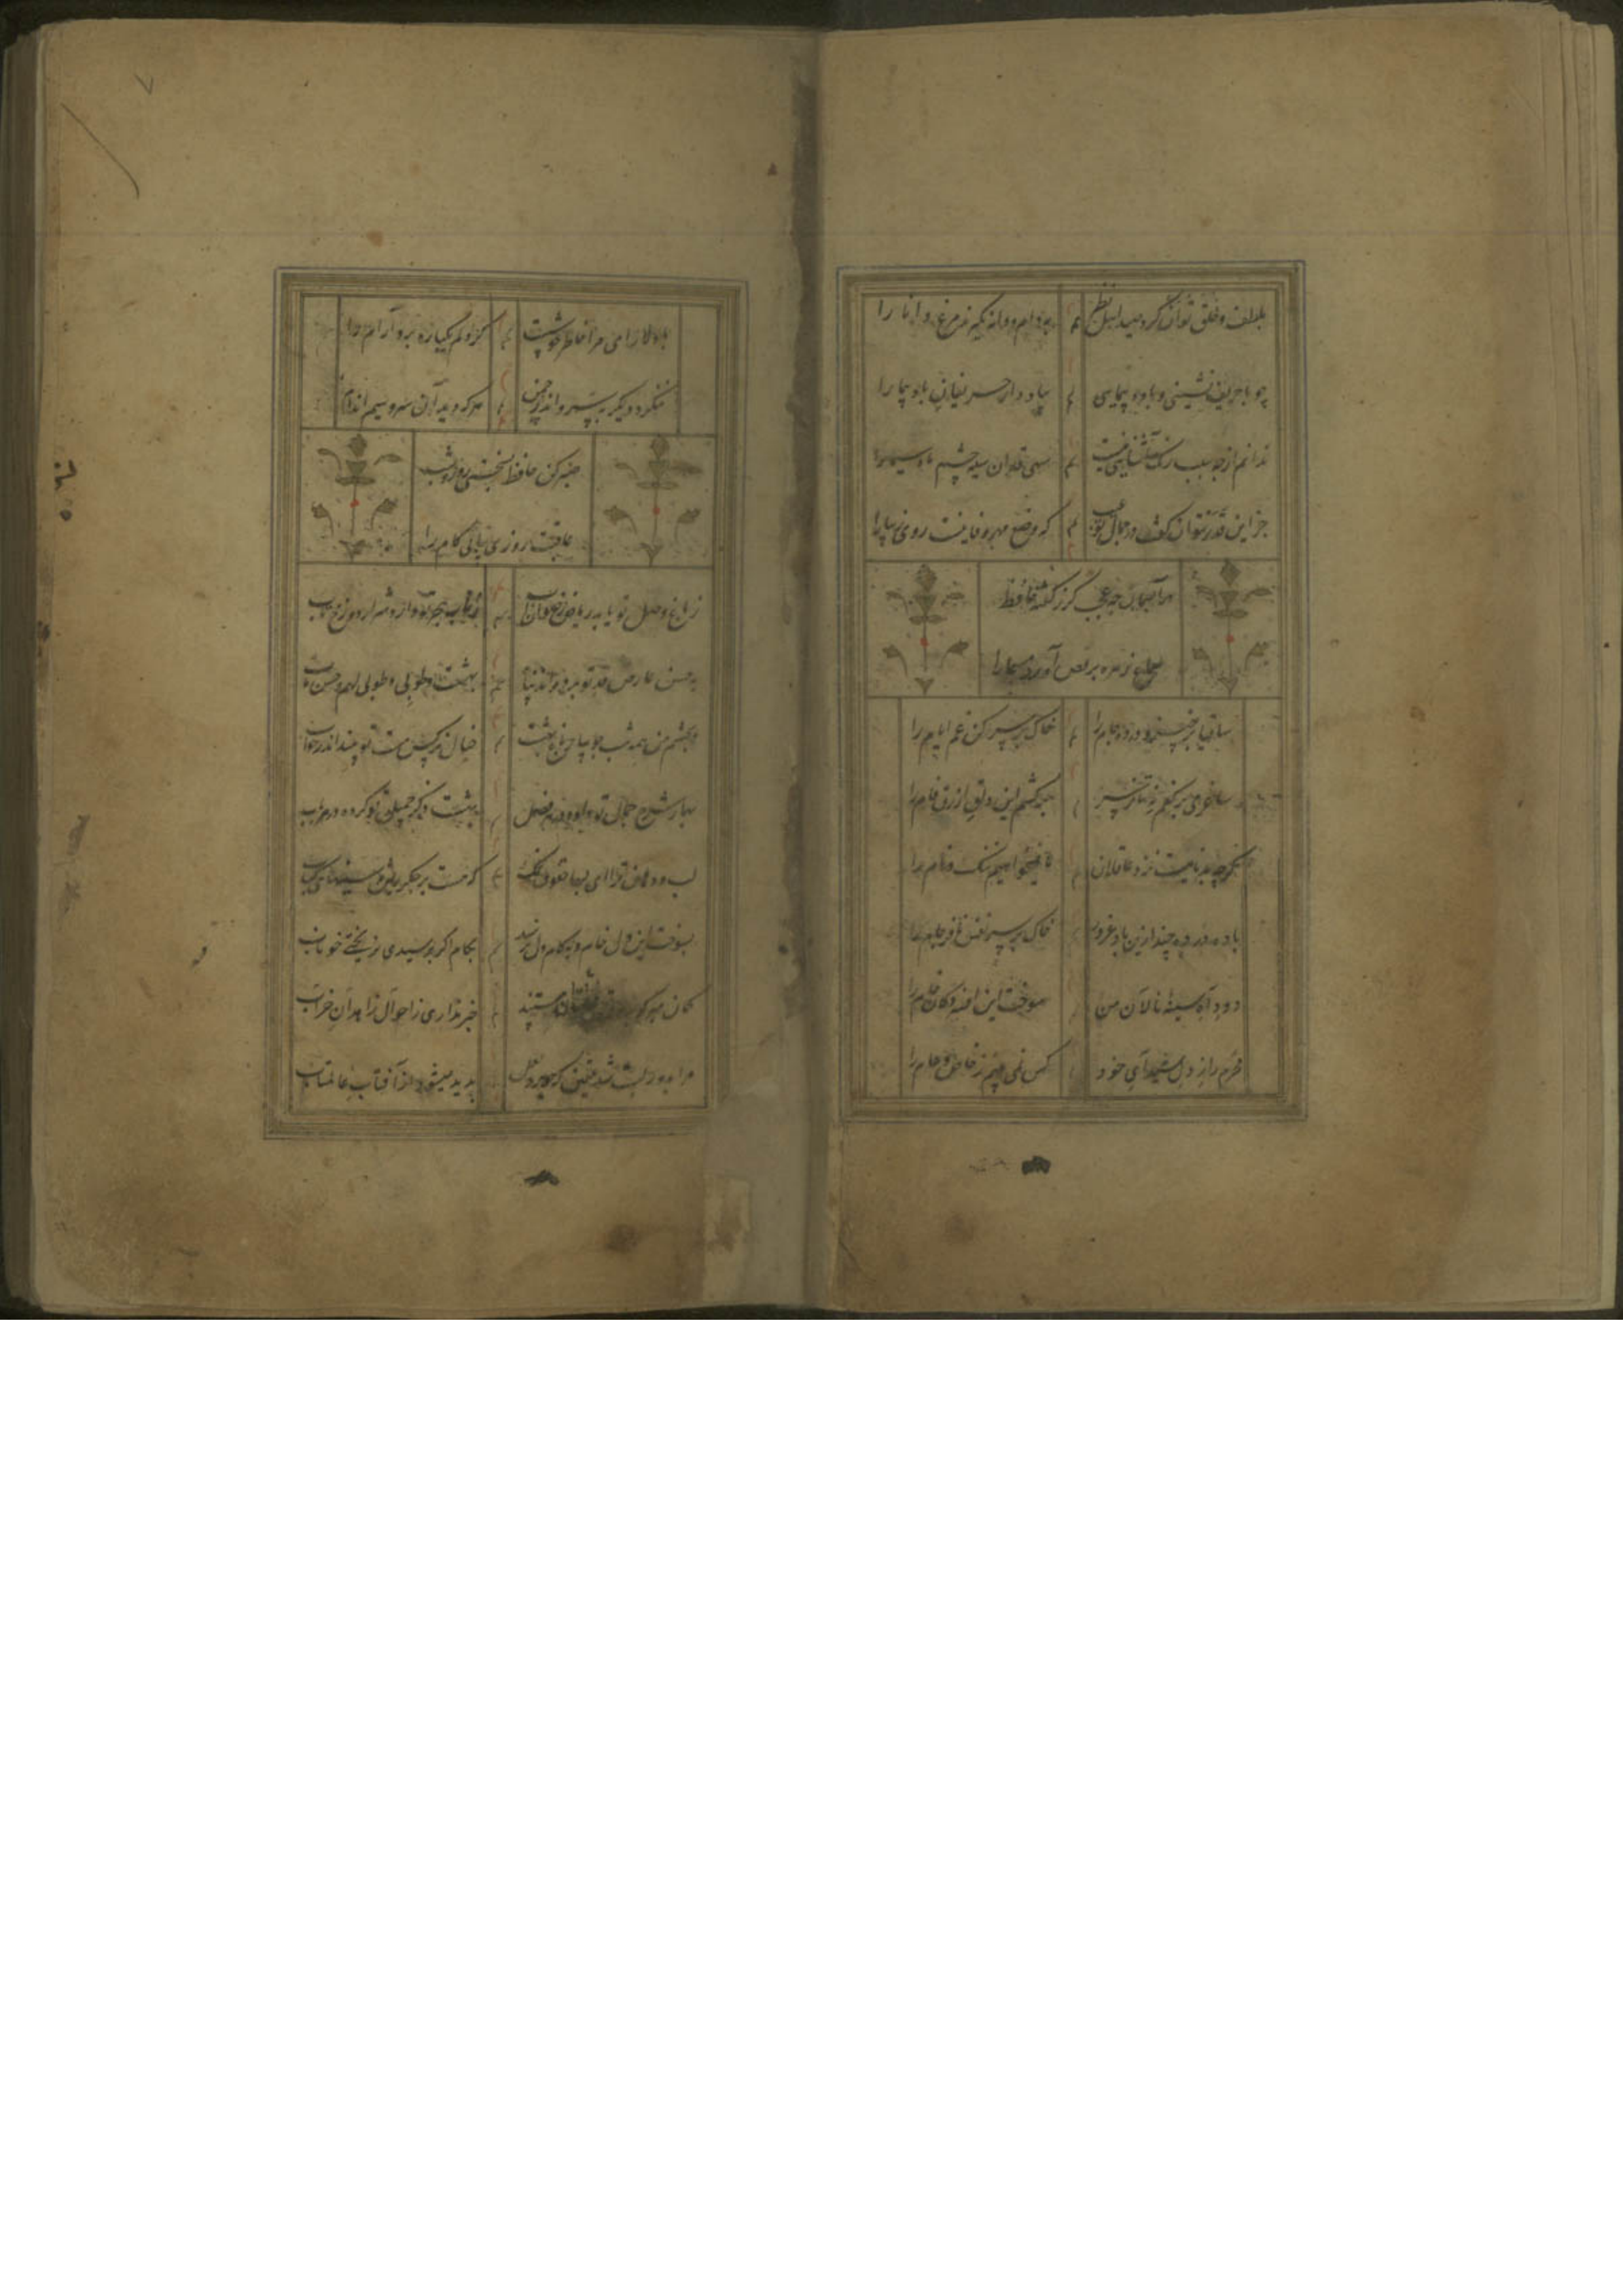 بلطف و خلق توان کرد صید اهل نظر بدام و دانه نگیرند مرغ دانا را
چو با حریف نشینی و باده پیمایی بیاد دار حریفان باد پیما را
ندانم از چه سبب رنک آشنایی نیست سهی قدان سیه چشم ماه سیما را
جز این قدر نتوان گفت در جمال تو عیب که وضع مهر و وفا نیست روی زیبا را
در آسمان چه عجب گر ز گفته حافظ
سماع زهره برقص آورد مسیحا را
ساقیا برخیز و در ده جام را خاک بر سر کن غم ایام را
ساغر می بر کفم نه تا ز سر بر کشم این دلق ازرق فام را
گرچه بدنامیست نزد عاقلان ما نمیخواهیم ننک و نام را
باده در ده چند ازین باد غرور خاک بر سر نفس نافرجام را
دود آه سینه نالان من سوخت این افسردکان خام را
محرم راز دل شیدای خود کس نمی بینم ز خاص و عام را
با دلارامی مرا خاطر خوشست کز دلم یکباره برد آرام را
ننگرد دیگر بسرو اندر چمن هر که دید آن سرو سیم اندام
صبر کن حافظ بسختی روز و شب
عاقبت روزی بیابی کام را
ز باغ وصل تو یابد ریاض رضوان آب ز تاب هجر تو دارد شرار دوزخ تاب
بحسن عارض و قد تو برده اند پناه بهشت و طوبی و طوبی لهم و حسن مآب
چو چشم من همه شب جویبار باغ بهشت خیال نرکس مست تو بیند اندر خواب
بهار شرح جمال تو داده در هر فصل بهشت ذکر جمیل تو کرده در هر باب
لب و دهان ترا ای بسا حقوق نمک که هست بر جکر ریش و سینهای کباب
بسوخت این دل خام و بکام دل نرسید بکام اگر برسیدی نریختی خوناب
کمان مبر که بدور تو عاشقان مستند خبر نداری ز احوال زاهدان خراب
مرا بدور لبت شد یقین که جوهر لعل پدید میشود از آفتاب عالمتاب